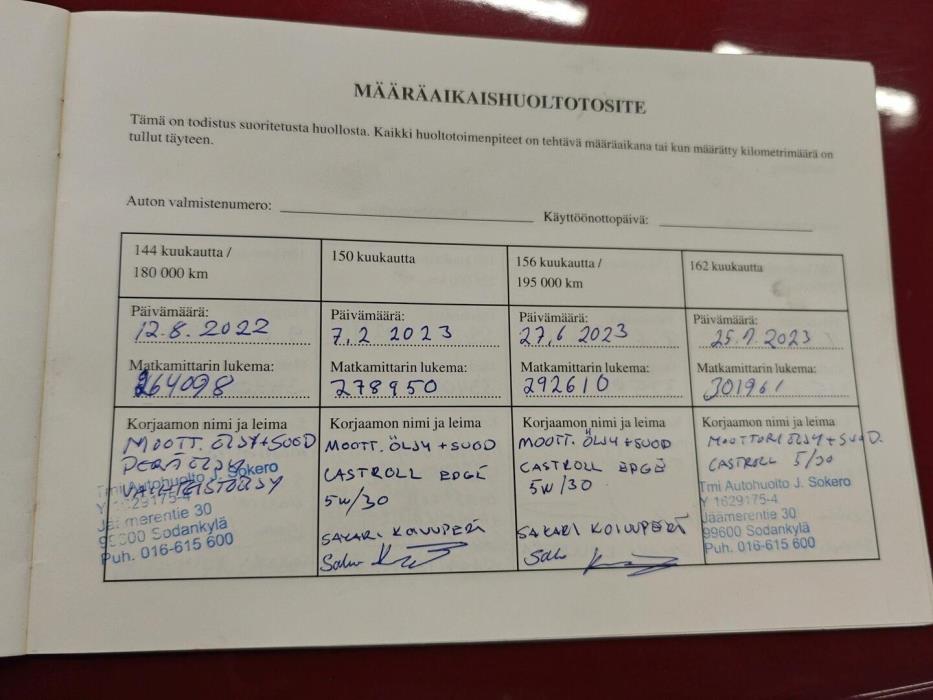 MÄÄRÄAIKAISHUOLTOTOSITE
Tämä on todistus suoritetusta huollosta. Kaikki huoltotoimenpiteet on tehtävä määräaikana tai kun määrätty kilometrimäärä on
tullut täyteen.
Auton valmistenumero:
Käyttöönottopäivä:
144 kuukautta /
180 000 km
Päivämäärä:
12.8.2022
Matkamittarin lukema:
264098
Korjaamon nimi ja leima
MOOTT. ÖLJY+SUOD
PERÄ ÖLJY
VAIHTEISTOÖLJY
Tmi Autohuolto J. Sokero
Y 1629175-4
Jäämerentie 30
99600 Sodankylä
Puh. 016-615 600
150 kuukautta
Päivämäärä:
7.2 2023
Matkamittarin lukema:
278950
Korjaamon nimi ja leima
MOOTT. ÖLJY +SUOD
CASTROLL EDGE
5W/30
SAKARI KOIVUPERÄ
156 kuukautta /
195 000 km
Päivämäärä:
27.6 2023
Matkamittarin lukema:
292610
Korjaamon nimi ja leima
MOOTT. ÖLJY +SUOD
CASTROLL EDGE
5W/30
SAKARI KOIVUPERÄ
162 kuukautta
Päivämäärä:
2023
Matkamittarin lukema:
301961
Korjaamon nimi ja leima
MOOTTORIÖLJY+SUOD.
CASTROLL 5/30
Tmi Autohuolto J. Sokero
Y 1629175-4
Jäämerentie 30
99600 Sodankylä
Puh. 016-615 600